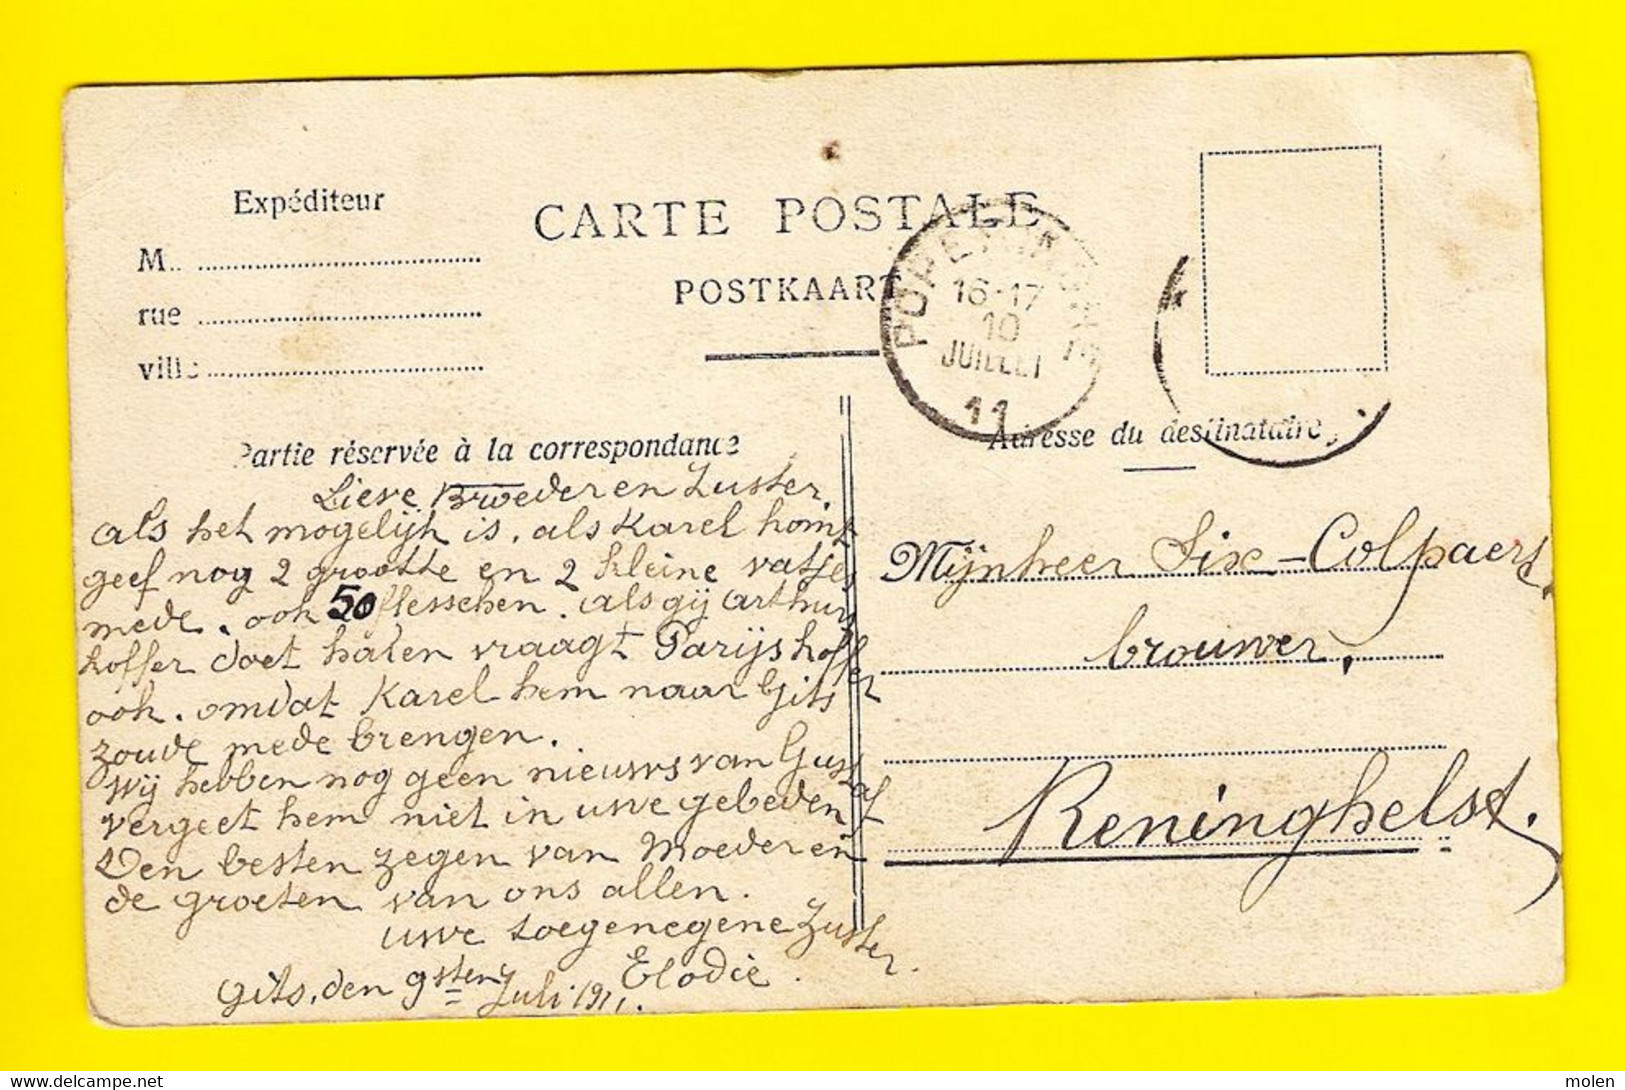 Expéditeur
M.
rue
ville
CARTE POSTALE
POSTKAART
POPERINGHE
16-17
10
JUILLET
11
Partie réservée à la correspondance
Adresse du destinataire
Lieve Broeder en Zuster,
als het mogelijk is, als Karel homt
geef nog 2 grootte en 2 kleine vatjes
mede, ook 50 flesschen. als gij Arthurs
koffer doet halen vraagt Parijs koffer
ook. omdat Karel hem naar Gits
zoude mede brengen.
Wij hebben nog geen nieuws van Gustaf
vergeet hem niet in uwe gebeden
Den besten zegen van Moeder en
de groeten van ons allen.
uwe toegenegene Zuster.
Elodie.
Gits, den 9sten Juli 1911.
Mijnheer Six-Colpaert,
brouwer,
Reninghelst.
molen